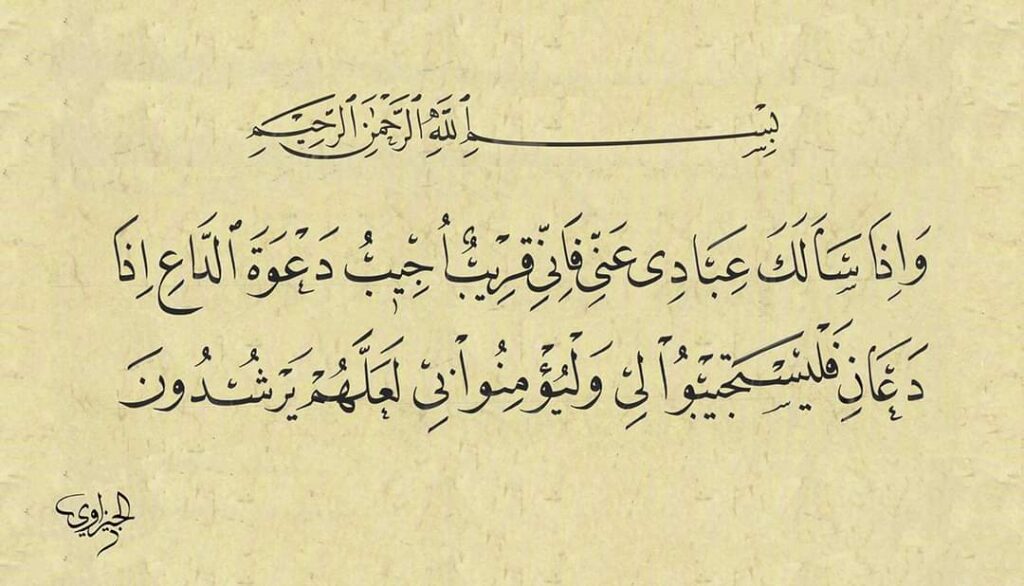 بِسْمِ ٱللَّهِ ٱلرَّحْمَٰنِ ٱلرَّحِيمِ
وَاِذَا سَاَلَكَ عِبَادِى عَنِّى فَاِنِّى قَرِيْبٌ اُجِيْبُ دَعْوَةَ ٱلدَّاعِ اِذَا
دَعَانِ فَلْيَسْتَجِيْبُوا۟ لِى وَلْيُؤْمِنُوا۟ بِى لَعَلَّهُمْ يَرْشُدُونَ
الجيزاوي